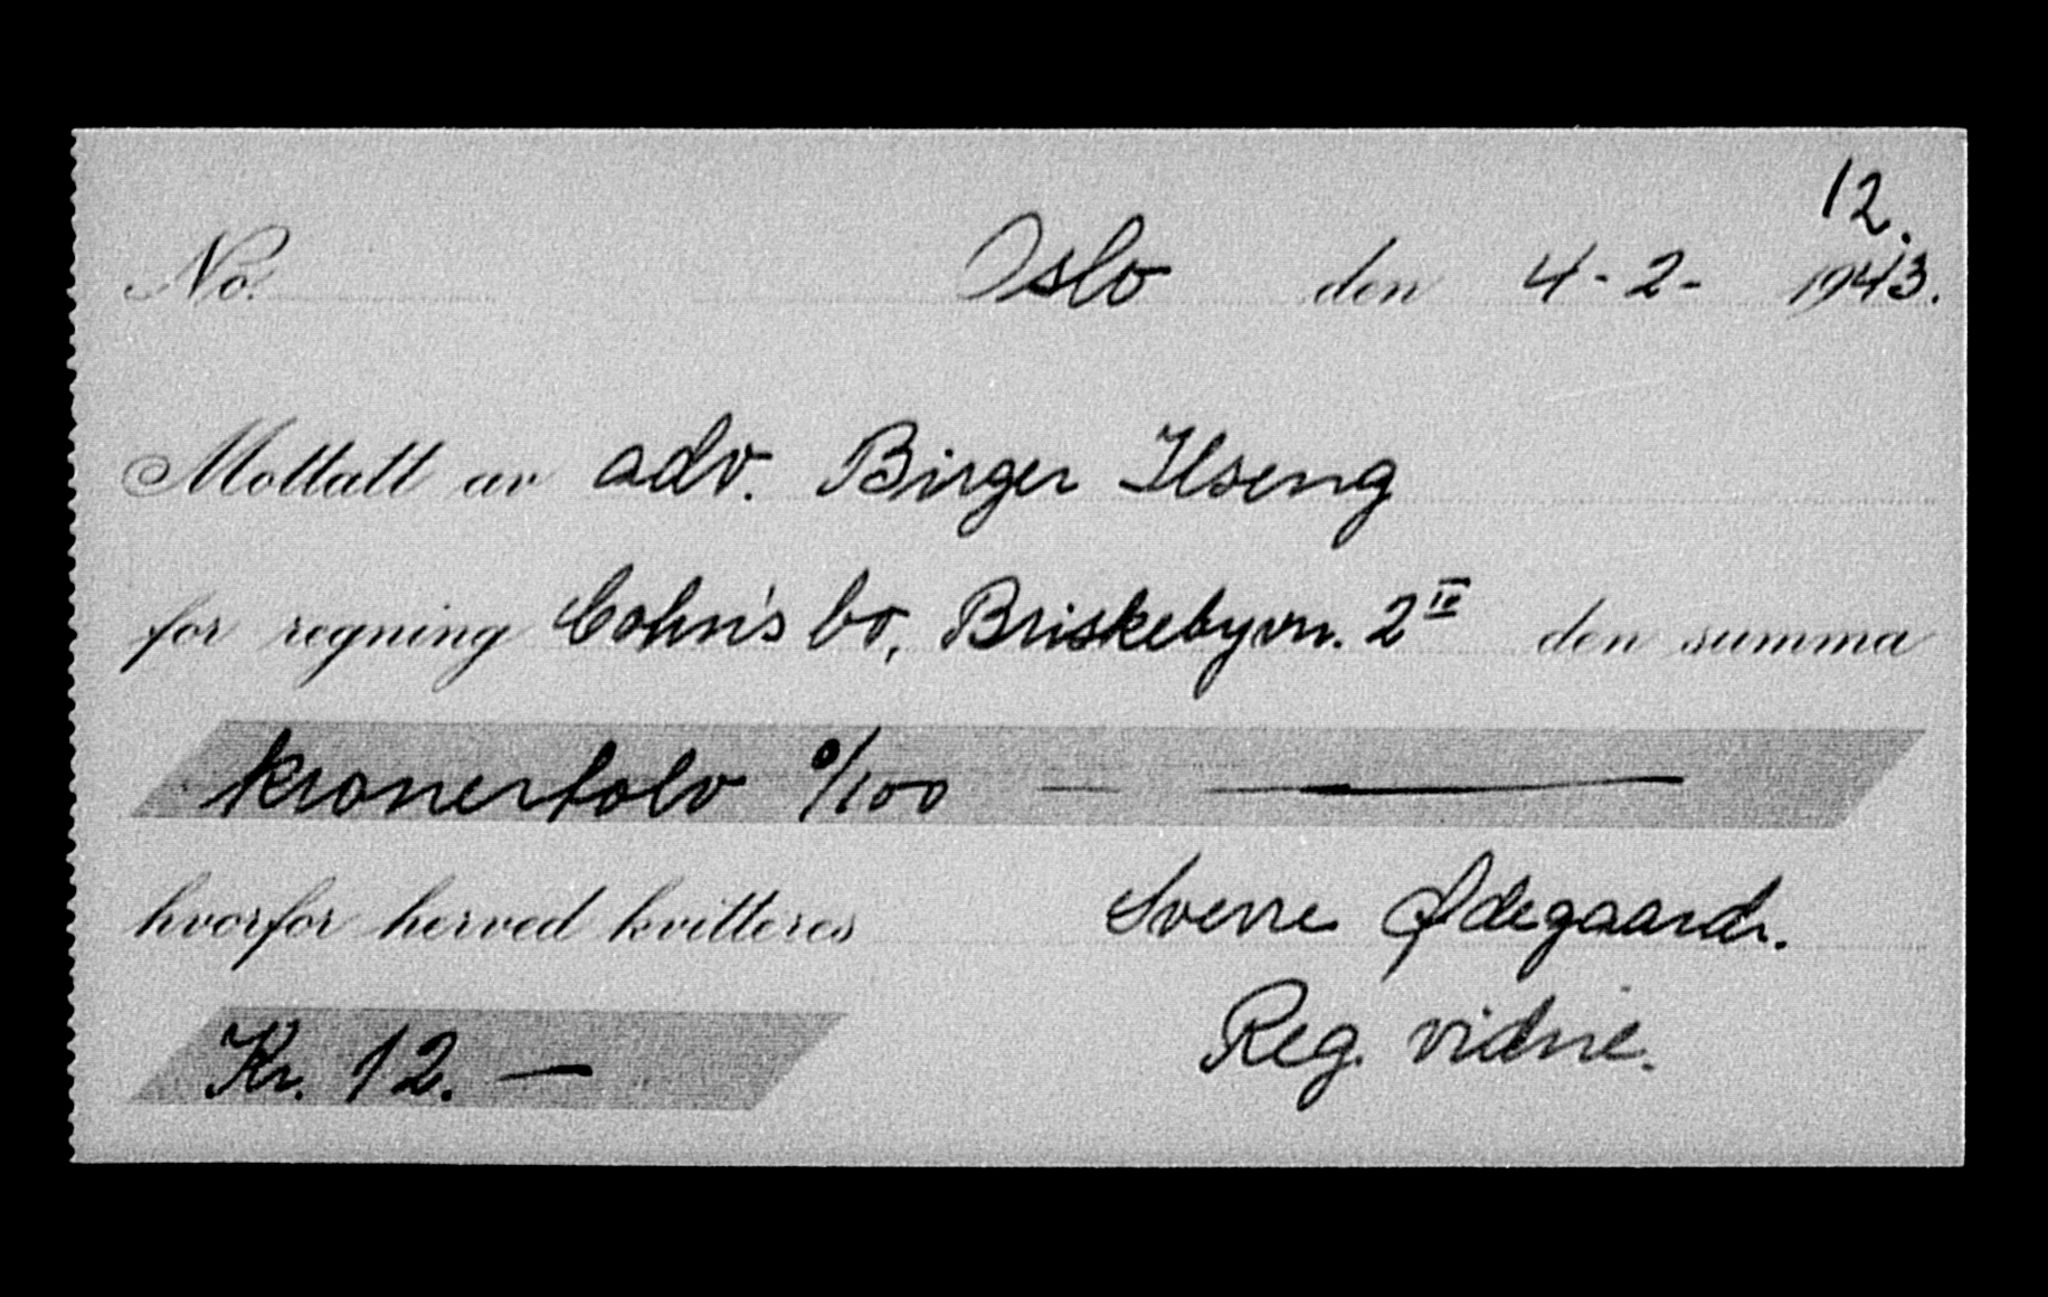 12.
No. Oslo den 4-2- 1943.
Mottatt av adv. Birger Ilseng
for regning Cohn's bo, Briskebyvn. 2 IV den summa
kronertolv 0/100
hvorfor herved kvitteres Sverre Ødegaard.
Reg. vidne.
Kr. 12. —